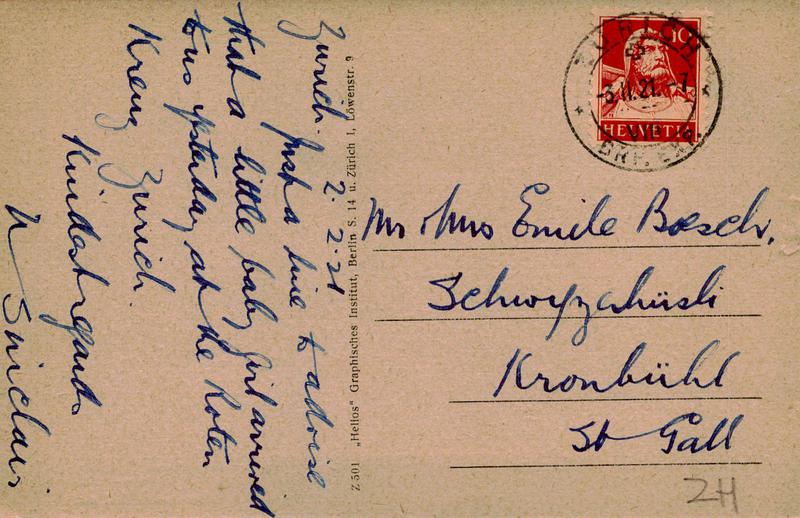 Zurich. 2.2.21
Just a line to advise
that a little baby girl arrived
to us ysterday at the Roten
Kreuz Zurich.
Kindest regards
N Sinclair
Z 501 „Helios“ Graphisches Institut, Berlin S. 14 u. Zürich 1, Löwenstr. 9
ZÜRICH
-3.II.21.-7
VIII
BRF. EXP.
10
HELVETIA
Mr & Mrs Emile Boesch,
Schwyzerhüsli
Kronbühl
St Gall
ZH